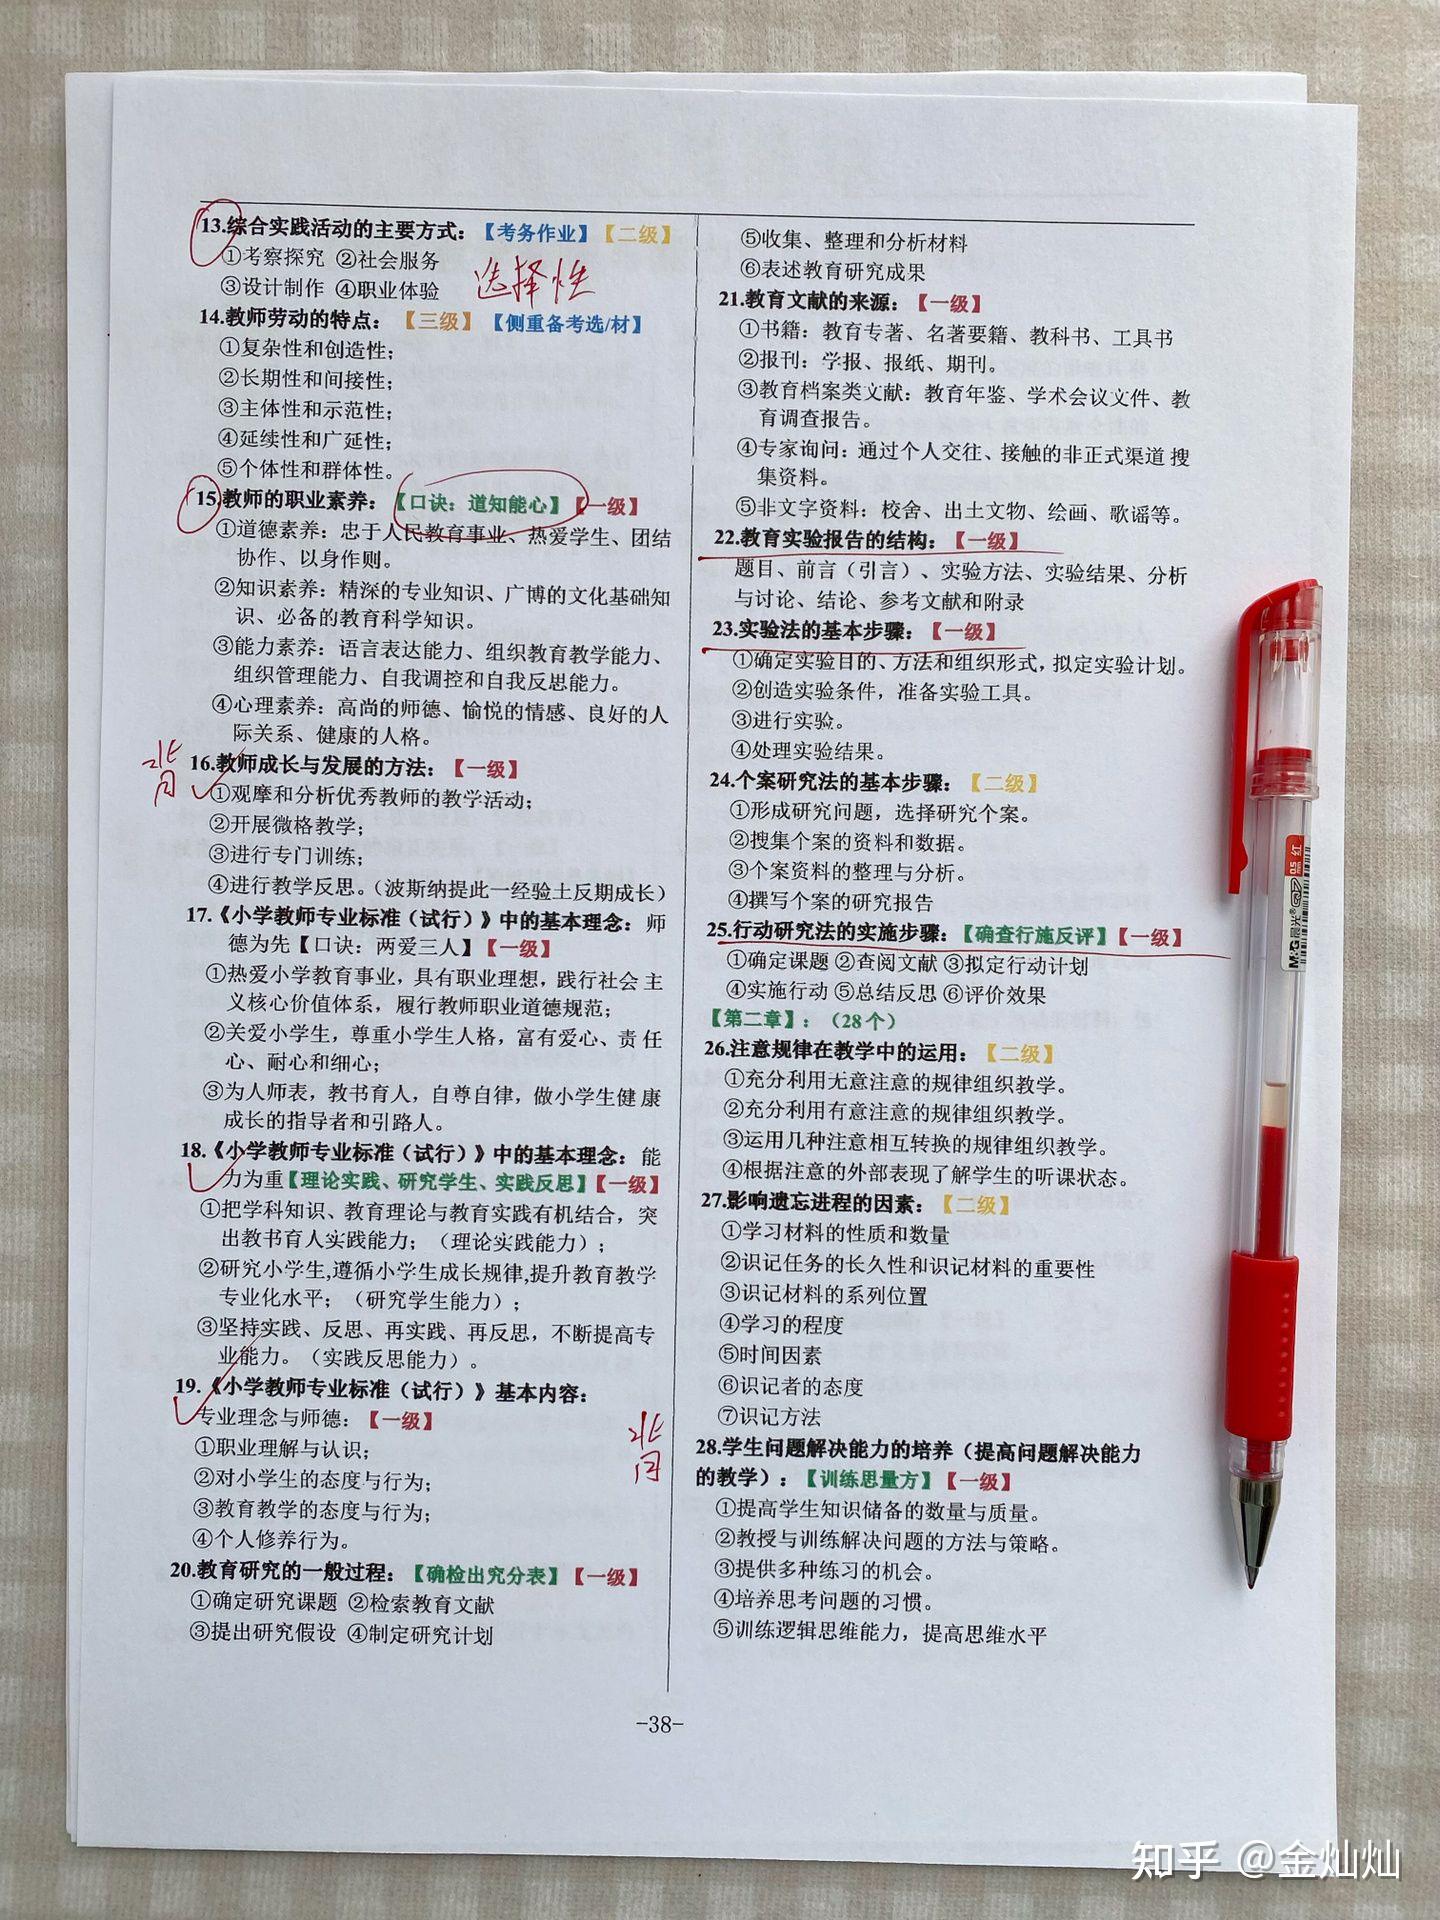 13.综合实践活动的主要方式：【考务作业】【二级】
①考察探究 ②社会服务
③设计制作 ④职业体验
选择性
14.教师劳动的特点：【三级】【侧重备考选/材】
①复杂性和创造性；
②长期性和间接性；
③主体性和示范性；
④延续性和广延性；
⑤个体性和群体性。
15.教师的职业素养：【口诀：道知能心】【一级】
①道德素养：忠于人民教育事业、热爱学生、团结
协作、以身作则。
②知识素养：精深的专业知识、广博的文化基础知
识、必备的教育科学知识。
③能力素养：语言表达能力、组织教育教学能力、
组织管理能力、自我调控和自我反思能力。
④心理素养：高尚的师德、愉悦的情感、良好的人
际关系、健康的人格。
背
16.教师成长与发展的方法：【一级】
①观摩和分析优秀教师的教学活动；
②开展微格教学；
③进行专门训练；
④进行教学反思。（波斯纳提此一经验土反期成长）
17.《小学教师专业标准（试行）》中的基本理念：师
德为先【口诀：两爱三人】【一级】
①热爱小学教育事业，具有职业理想，践行社会主
义核心价值体系，履行教师职业道德规范；
②关爱小学生，尊重小学生人格，富有爱心、责任
心、耐心和细心；
③为人师表，教书育人，自尊自律，做小学生健康
成长的指导者和引路人。
18.《小学教师专业标准（试行）》中的基本理念：能
力为重【理论实践、研究学生、实践反思】【一级】
①把学科知识、教育理论与教育实践有机结合，突
出教书育人实践能力；（理论实践能力）；
②研究小学生,遵循小学生成长规律,提升教育教学
专业化水平；（研究学生能力）；
③坚持实践、反思、再实践、再反思，不断提高专
业能力。（实践反思能力）。
19.《小学教师专业标准（试行）》基本内容：
专业理念与师德：【一级】
①职业理解与认识；
②对小学生的态度与行为；
③教育教学的态度与行为；
④个人修养行为。
背
20.教育研究的一般过程：【确检出究分表】【一级】
①确定研究课题 ②检索教育文献
③提出研究假设 ④制定研究计划
⑤收集、整理和分析材料
⑥表述教育研究成果
21.教育文献的来源：【一级】
①书籍：教育专著、名著要籍、教科书、工具书
②报刊：学报、报纸、期刊。
③教育档案类文献：教育年鉴、学术会议文件、教
育调查报告。
④专家询问：通过个人交往、接触的非正式渠道搜
集资料。
⑤非文字资料：校舍、出土文物、绘画、歌谣等。
22.教育实验报告的结构：【一级】
题目、前言（引言）、实验方法、实验结果、分析
与讨论、结论、参考文献和附录
23.实验法的基本步骤：【一级】
①确定实验目的、方法和组织形式，拟定实验计划。
②创造实验条件，准备实验工具。
③进行实验。
④处理实验结果。
24.个案研究法的基本步骤：【二级】
①形成研究问题，选择研究个案。
②搜集个案的资料和数据。
③个案资料的整理与分析。
④撰写个案的研究报告
25.行动研究法的实施步骤：【确查行施反评】【一级】
①确定课题 ②查阅文献 ③拟定行动计划
④实施行动 ⑤总结反思 ⑥评价效果
【第二章】：（28个）
26.注意规律在教学中的运用：【二级】
①充分利用无意注意的规律组织教学。
②充分利用有意注意的规律组织教学。
③运用几种注意相互转换的规律组织教学。
④根据注意的外部表现了解学生的听课状态。
27.影响遗忘进程的因素：【二级】
①学习材料的性质和数量
②识记任务的长久性和识记材料的重要性
③识记材料的系列位置
④学习的程度
⑤时间因素
⑥识记者的态度
⑦识记方法
28.学生问题解决能力的培养（提高问题解决能力
的教学）：【训练思量方】【一级】
①提高学生知识储备的数量与质量。
②教授与训练解决问题的方法与策略。
③提供多种练习的机会。
④培养思考问题的习惯。
⑤训练逻辑思维能力，提高思维水平
-38-
M&G 晨光® 0.5mm 红
知乎 @金灿灿